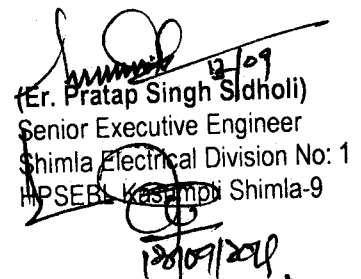 12/09
(Er. Pratap Singh Sidholi)
Senior Executive Engineer
Shimla Electrical Division No: 1
HPSEBL Kasumpti Shimla-9